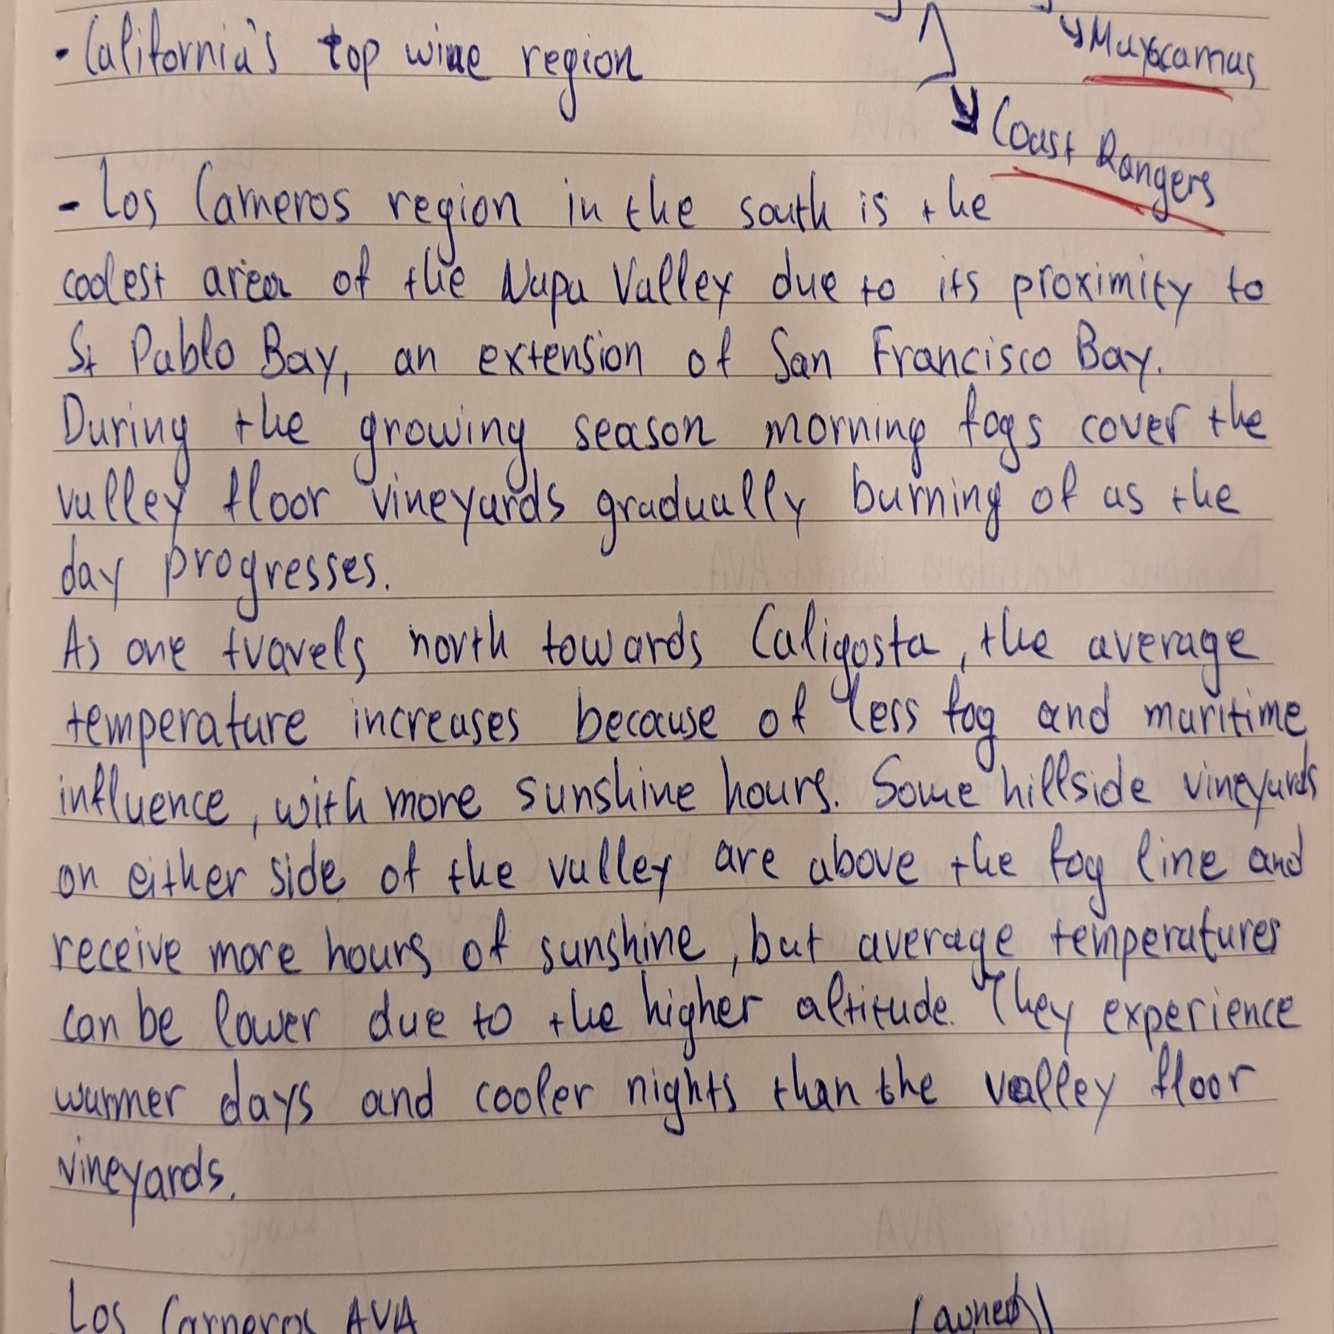 - California's top wine region
Mayacamas
Coast Rangers
- Los Carneros region in the south is the
coolest area of the Napa Valley due to its proximity to
St Pablo Bay, an extension of San Francisco Bay.
During the growing season morning fogs cover the
valley floor vineyards gradually burning of as the
day progresses.
As one travels north towards Caligosta, the average
temperature increases because of less fog and maritime
influence, with more sunshine hours. Some hillside vineyards
on either side of the valley are above the fog line and
receive more hours of sunshine, but average temperatures
can be lower due to the higher altitude. They experience
warmer days and cooler nights than the valley floor
vineyards.
Los Carneros AVA